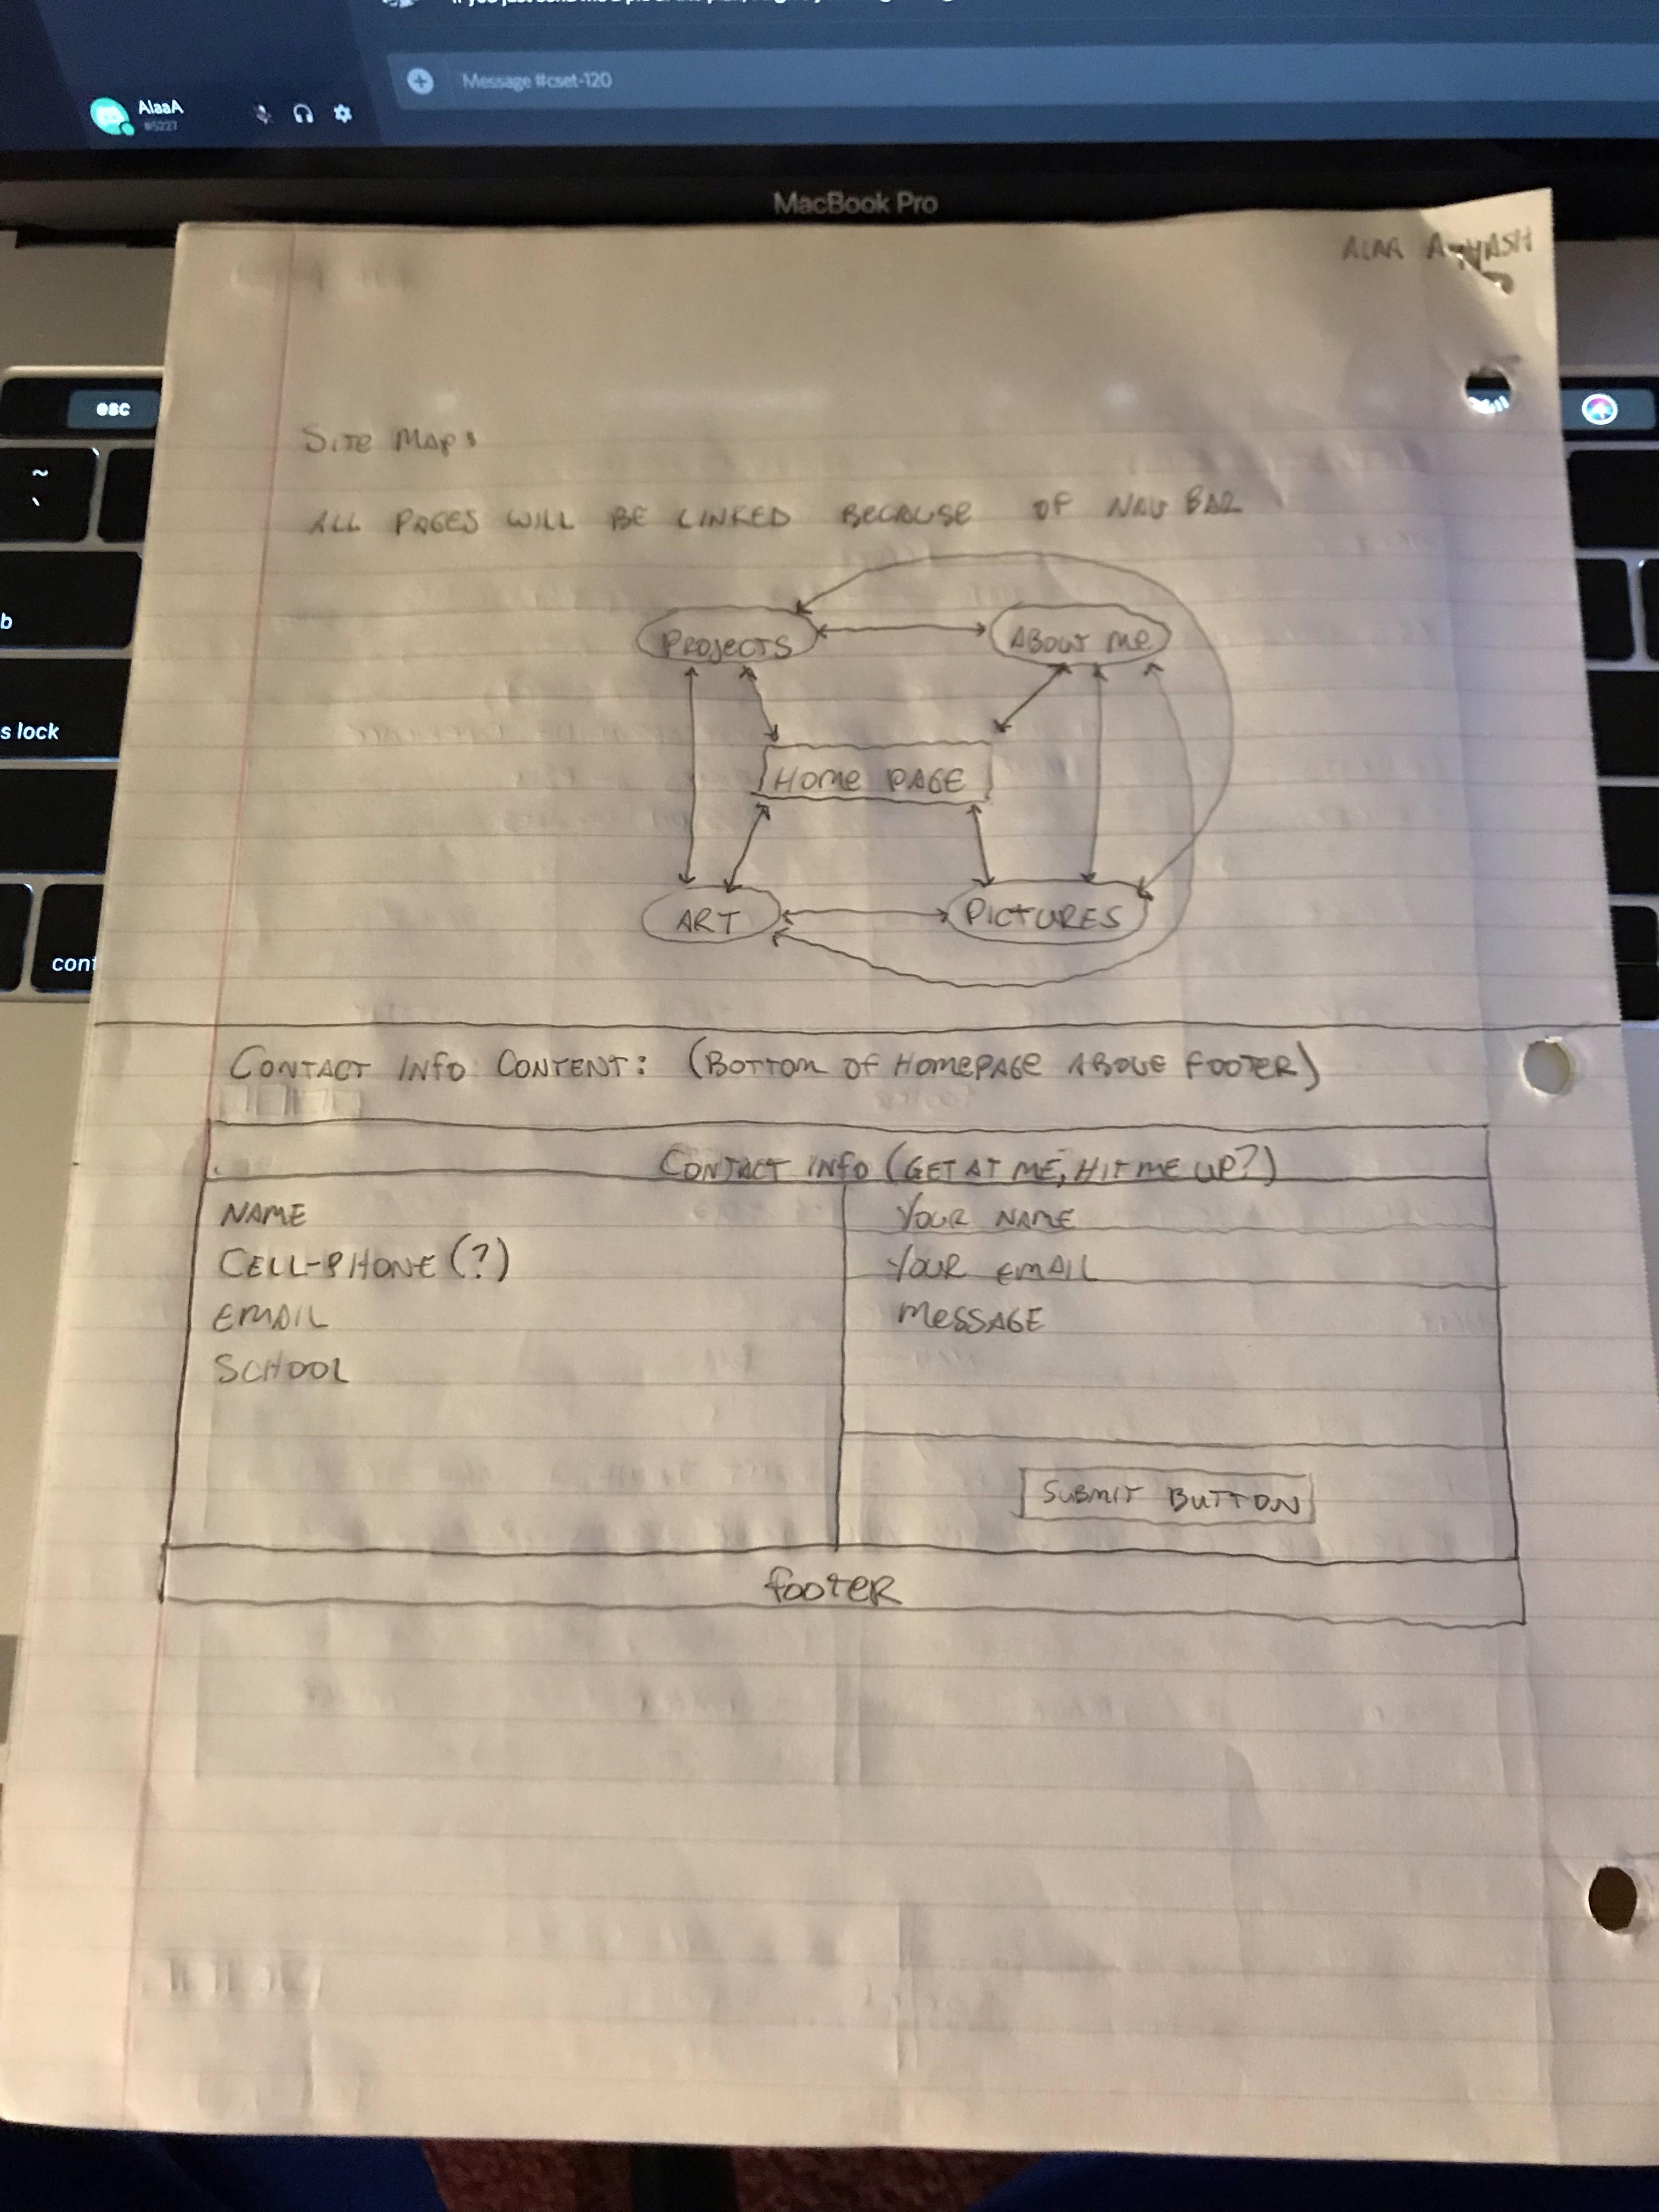 Message #cset-120
AlaaA
#5227
MacBook Pro
esc
~
`
b
s lock
cont
SITE MAP:
ALL PAGES WILL BE LINKED BECAUSE OF NAV BAR
PROJECTS
ABOUT ME
HOME PAGE
ART
PICTURES
CONTACT INFO CONTENT: (BOTTOM OF HOMEPAGE ABOVE FOOTER)
CONTACT INFO (GET AT ME, HIT ME UP?)
NAME
YOUR NAME
CELL-PHONE (?)
YOUR EMAIL
EMAIL
MESSAGE
SCHOOL
SUBMIT BUTTON
FOOTER